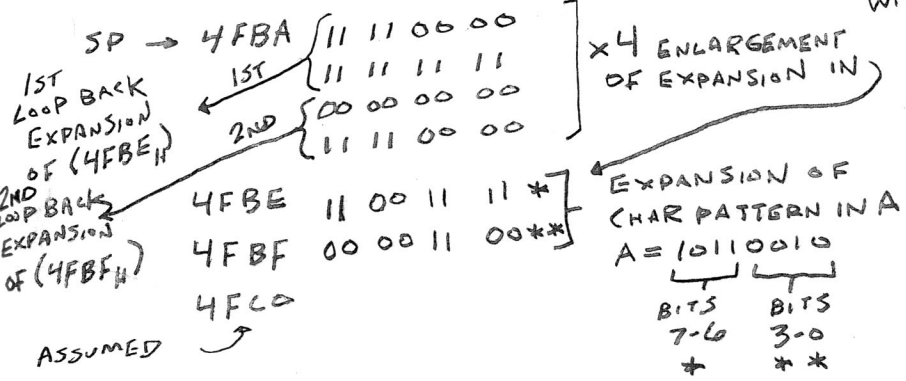 WI
SP → 4FBA 11 11 00 00
11 11 11 11
00 00 00 00
11 11 00 00
x4 ENLARGEMENT
OF EXPANSION IN
1ST
1ST
LOOP BACK
EXPANSION
OF (4FBEH)
2ND
2ND
LOOP BACK
EXPANSION
OF (4FBFH)
4FBE 11 00 11 11 *
4FBF 00 00 11 00 **
4FC0
ASSUMED
EXPANSION OF
CHAR PATTERN IN A
A = 10110010
BITS BITS
7-6 3-0
* **